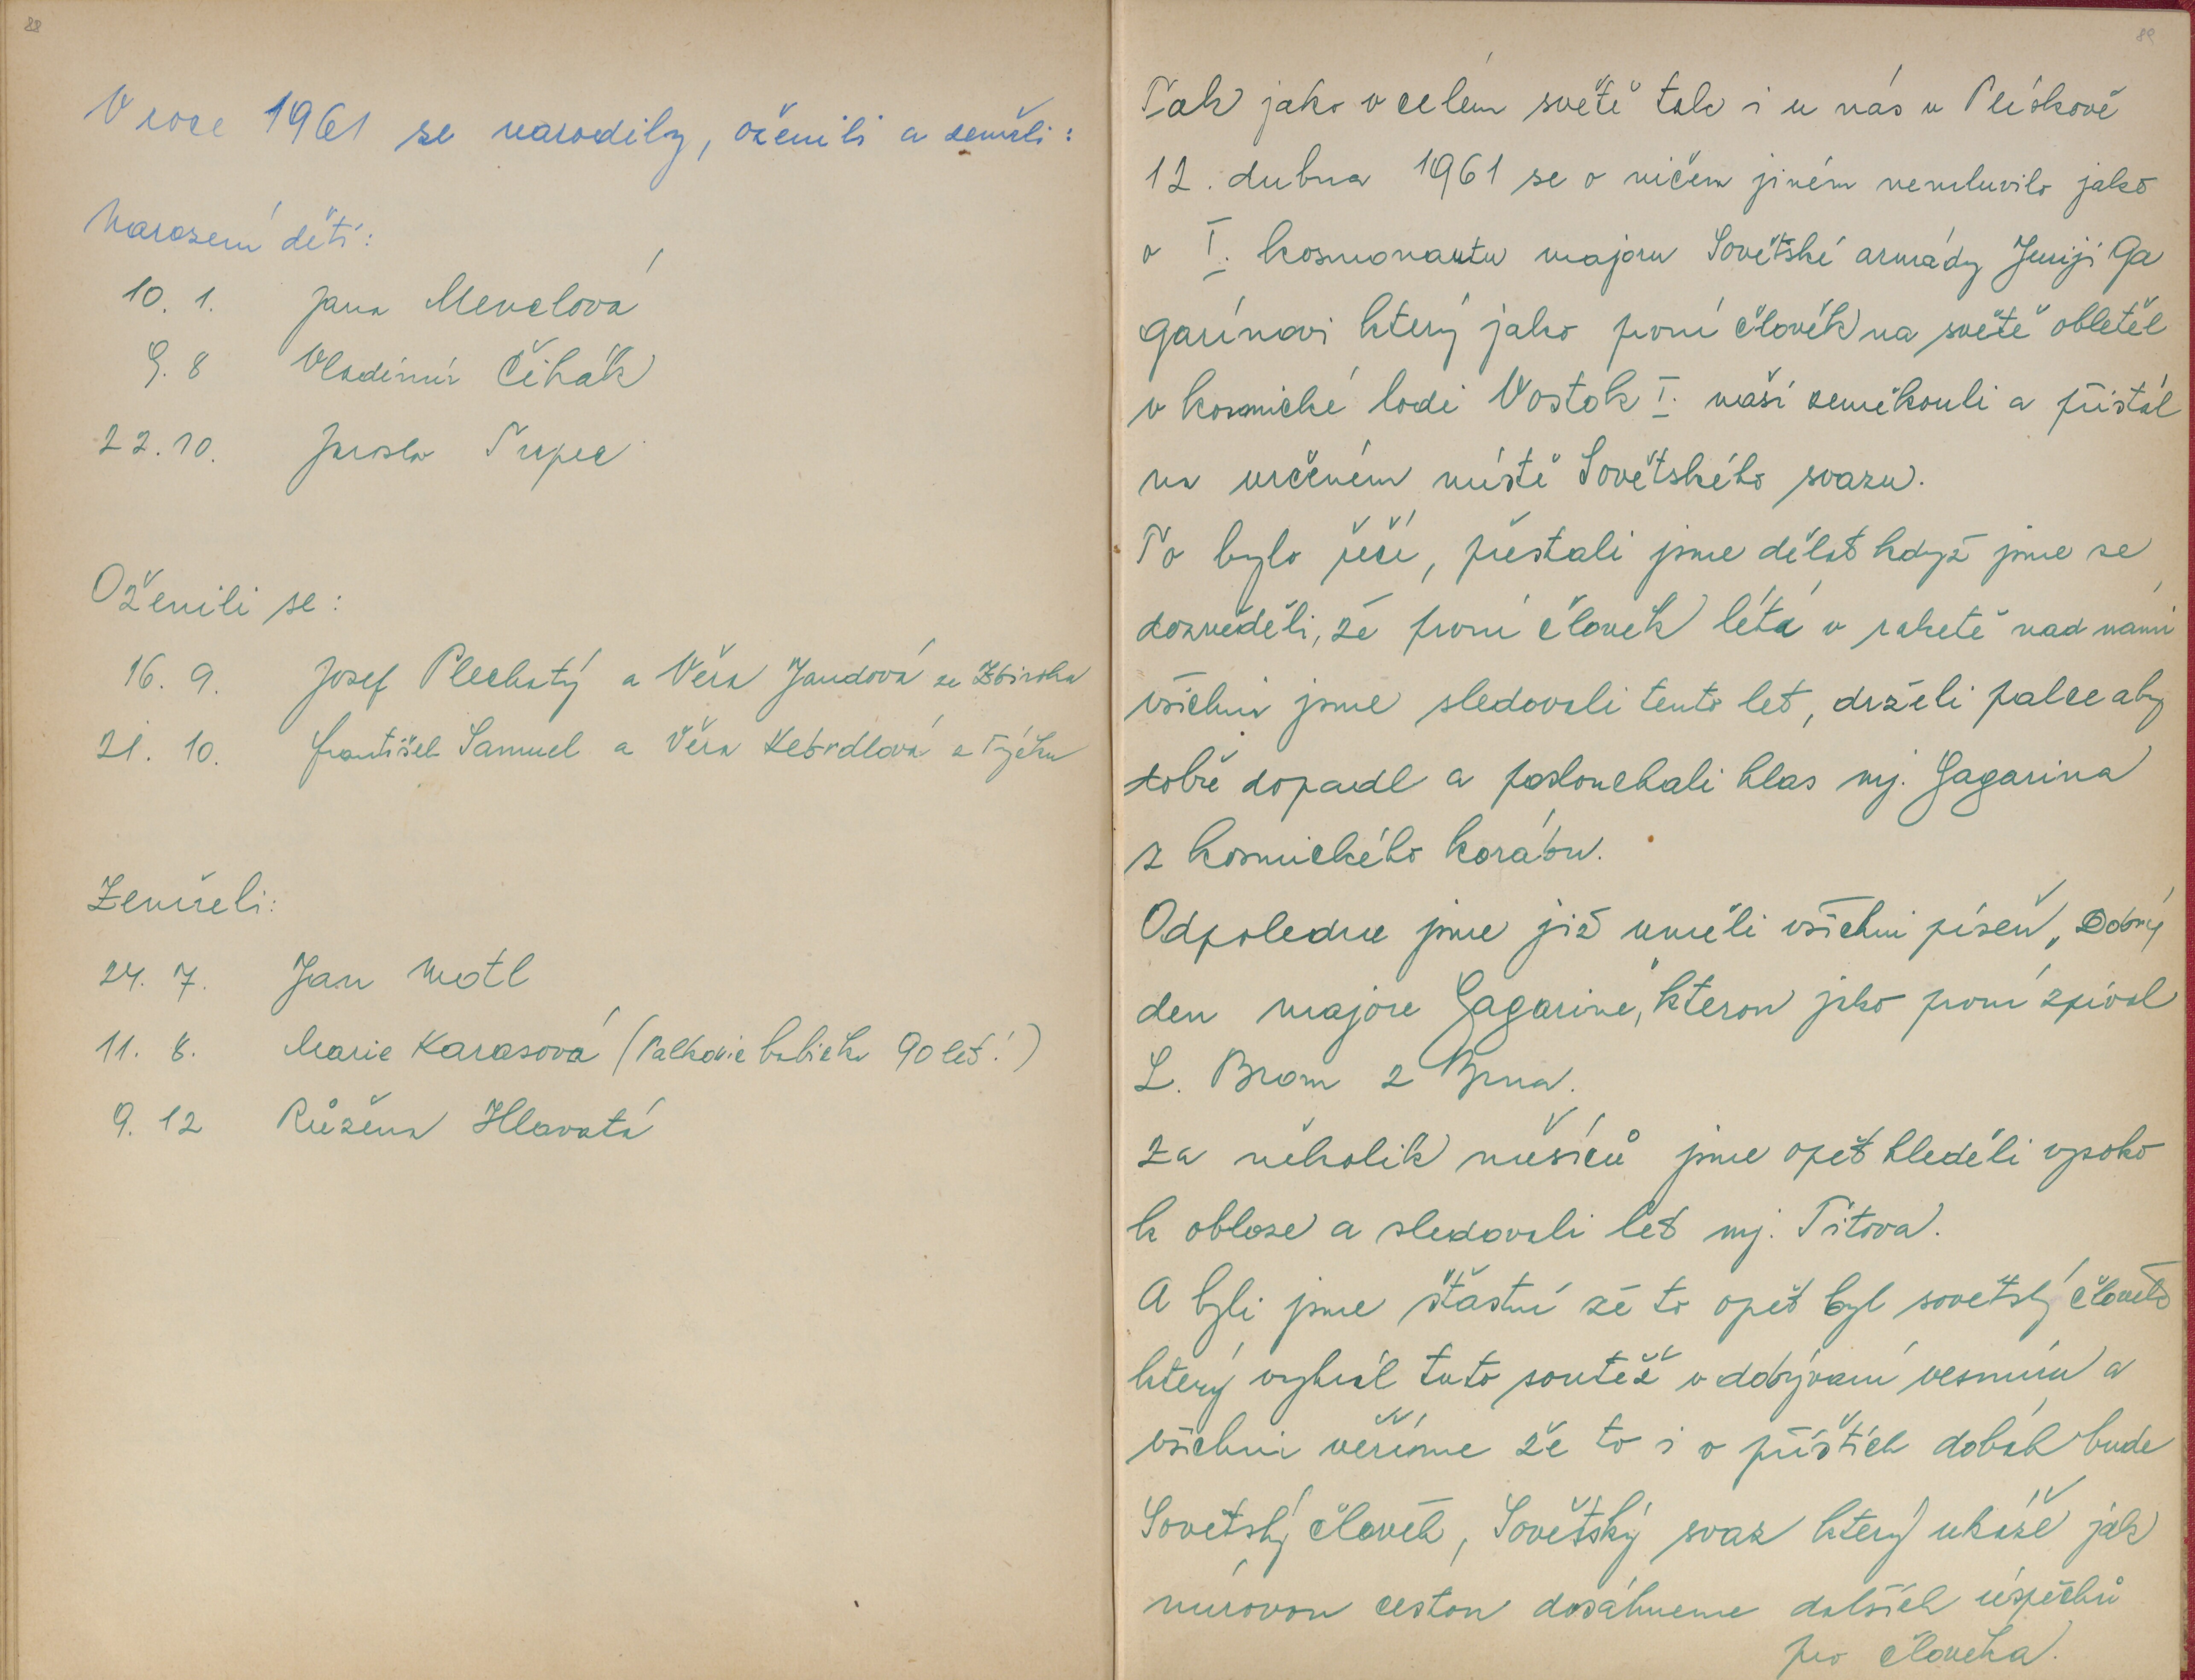 88
V roce 1961 se narodily, oženili a zemřeli:
Narození dětí:
10. 1. Jana Menclová
9. 8 Vladimír Čihák
22. 10. Jarosla Turpec
Oženili se:
16. 9. Josef Plechatý a Věra Jandová ze Zbiroha
21. 10. František Samuel a Věra Kebrdlová z Týčku
Zemřeli:
24. 7. Jan Motl
11. 8. Marie Karasová (Palkovic babička 90 let!)
9. 12 Růžena Hlavatá
89
Tak jako v celém světě tak i u nás v Plískově
12. dubna 1961 se o ničem jiném nemluvilo jako
o I. kosmonautu majoru Sovětské armády Juriji Ga
garínovi který jako první člověk na světě obletěl
v kosmické lodi Vostok I. naší zeměkouli a přistál
na určeném místě Sovětského svazu.
To bylo řečí, přestali jsme dělat když jsme se
dozvěděli, že první člověk létá v raketě nad námi
všichni jsme sledovali tento let, drželi palce aby
dobře dopadl a poslouchali hlas mj. Gagarina
z kosmického korábu.
Odpoledne jsme již uměli všichni píseň „Dobrý
den majore Gagarine," kterou jako první zpíval
L. Brom z Brna.
Za několik měsíců jsme opět hleděli vysoko
k obloze a sledovali let mj. Titova.
A byli jsme šťastní že to opět byl sovětský člověk
který vyhrál tuto soutěž v dobývaní vesmíru a
všichni věříme že to i v příštích dobách bude
Sovětský člověk, Sovětský svaz který ukáže jak
mírovou cestou dosáhneme dalších úspěchů
pro člověka.